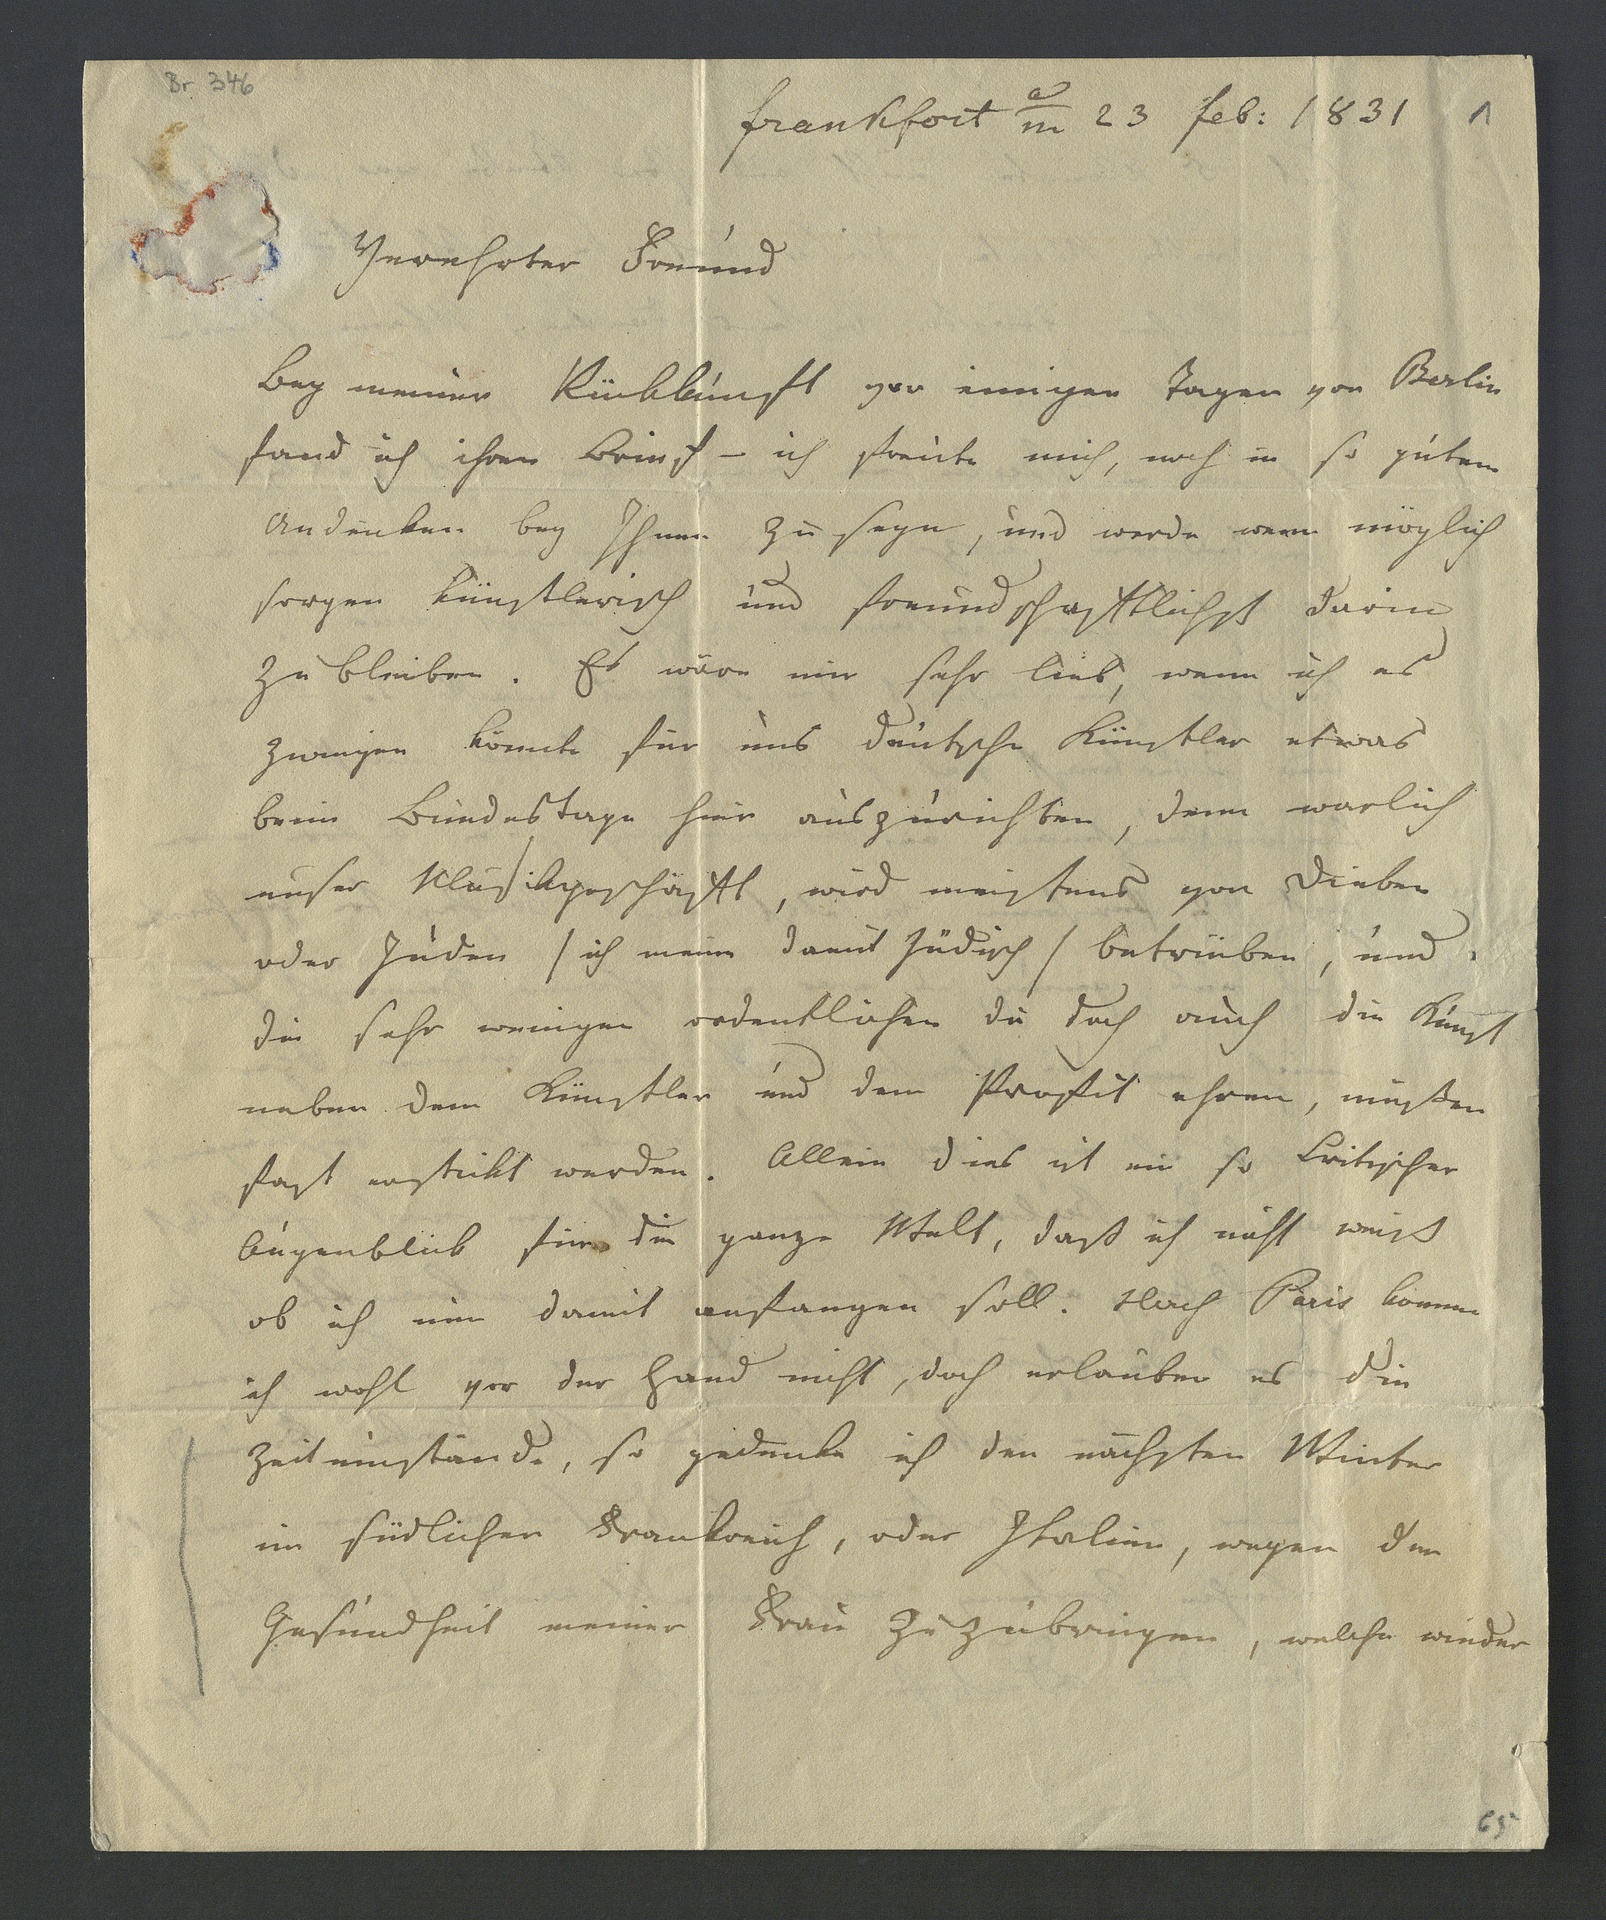 Br. 346
frankfort a/m 23 feb: 1831
1
Verehrter Freund
Bey meiner Rückkunft vor einigen Tagen von Berlin
fand ich ihren Brief – ich freute mich, noch in so gutem
Andenken bey Ihnen zu seyn, und werde wenn möglich
sorgen künstlerisch und freundschaftlichst darin
zu bleiben. Es wäre mir sehr lieb, wenn ich es
zwingen könnte für uns deutsche Künstler etwas
beim Bundestage hier auszurichten, denn warlich
unser Musikgeschäfft, wird meistens von Dieben
oder Juden / ich meine damit Jüdisch / betrieben, und
die sehr wenigen ordentlichen die doch auch die Kunst
neben dem Künstler und dem Profit ehren, müßen
fast erstickt werden. Allein dies ist ein so kritischer
Augenblick für die ganze Welt, daß ich nicht weiß
ob ich nun damit anfangen soll. Nach Paris komme
ich wohl vor der Hand nicht, doch erlauben es die
Zeitumstände, so gedenke ich den nächsten Winter
im südlichen Frankreich, oder Italien, wegen der
Gesundheit meiner Frau zuzubringen, welche wieder
65